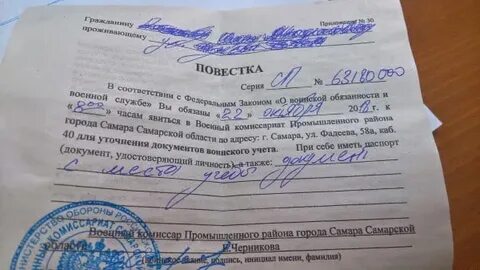 Приложение № 30
Гражданину
проживающему
ПОВЕСТКА
Серия СП № 63180000
В соответствии с Федеральным Законом «О воинской обязанности и
военной службе» Вы обязаны «22» октября 20
«8 00» часам явиться в Военный комиссариат Промышленного района
города Самара Самарской области по адресу: г. Самара, ул. Фадеева, 58а, каб.
40 для уточнения документов воинского учета. При себе иметь паспорт
(документ, удостоверяющий личность), а также: документ
с места учебы
Военный комиссар Промышленного района города Самара Самарской
области Черникова
подпись, инициал имени, фамилия)
МИНИСТЕРСТВО ОБОРОНЫ
КОМИССАРИАТ